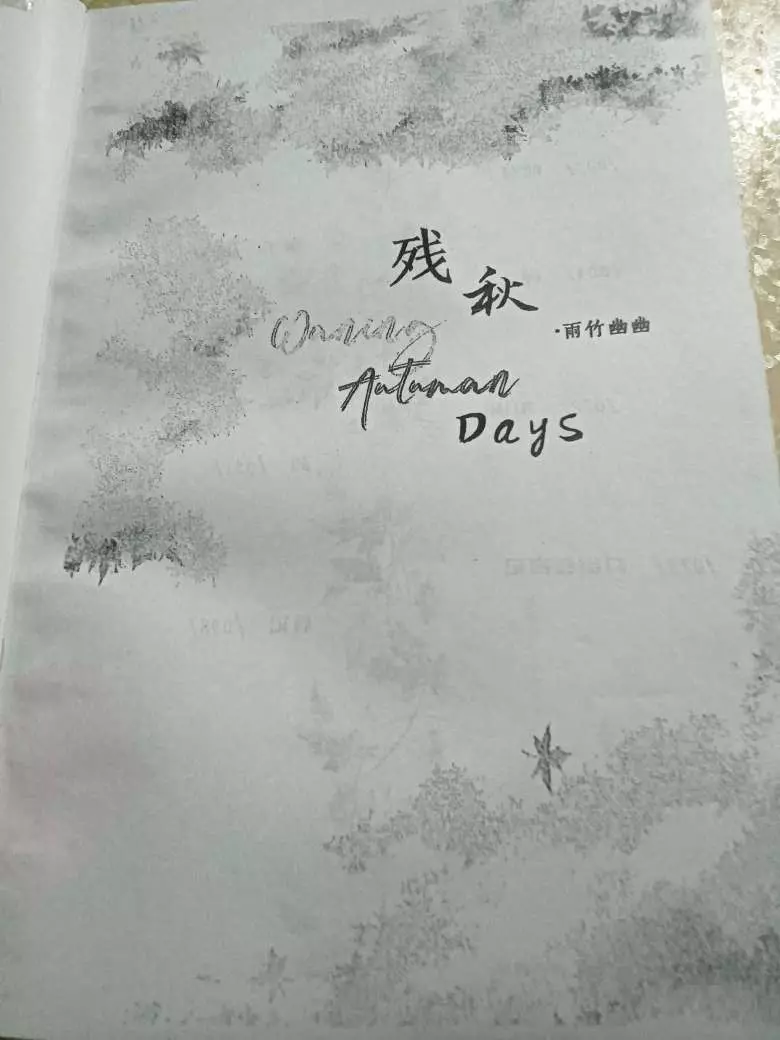 残
秋
·雨竹幽幽
Waning
Autuman
Days